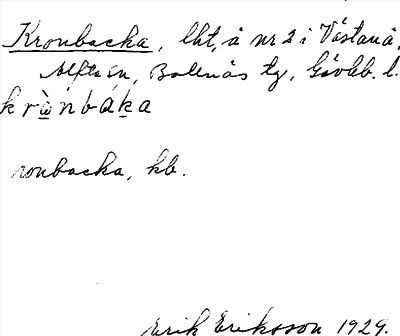 Kronbacka, lht, å nr 2 i Västanå,
Alfta sn, Bollnäs tg, Gävleb. l.
krὼnbáka
ronbacka, kb.
Erik Eriksson 1929.